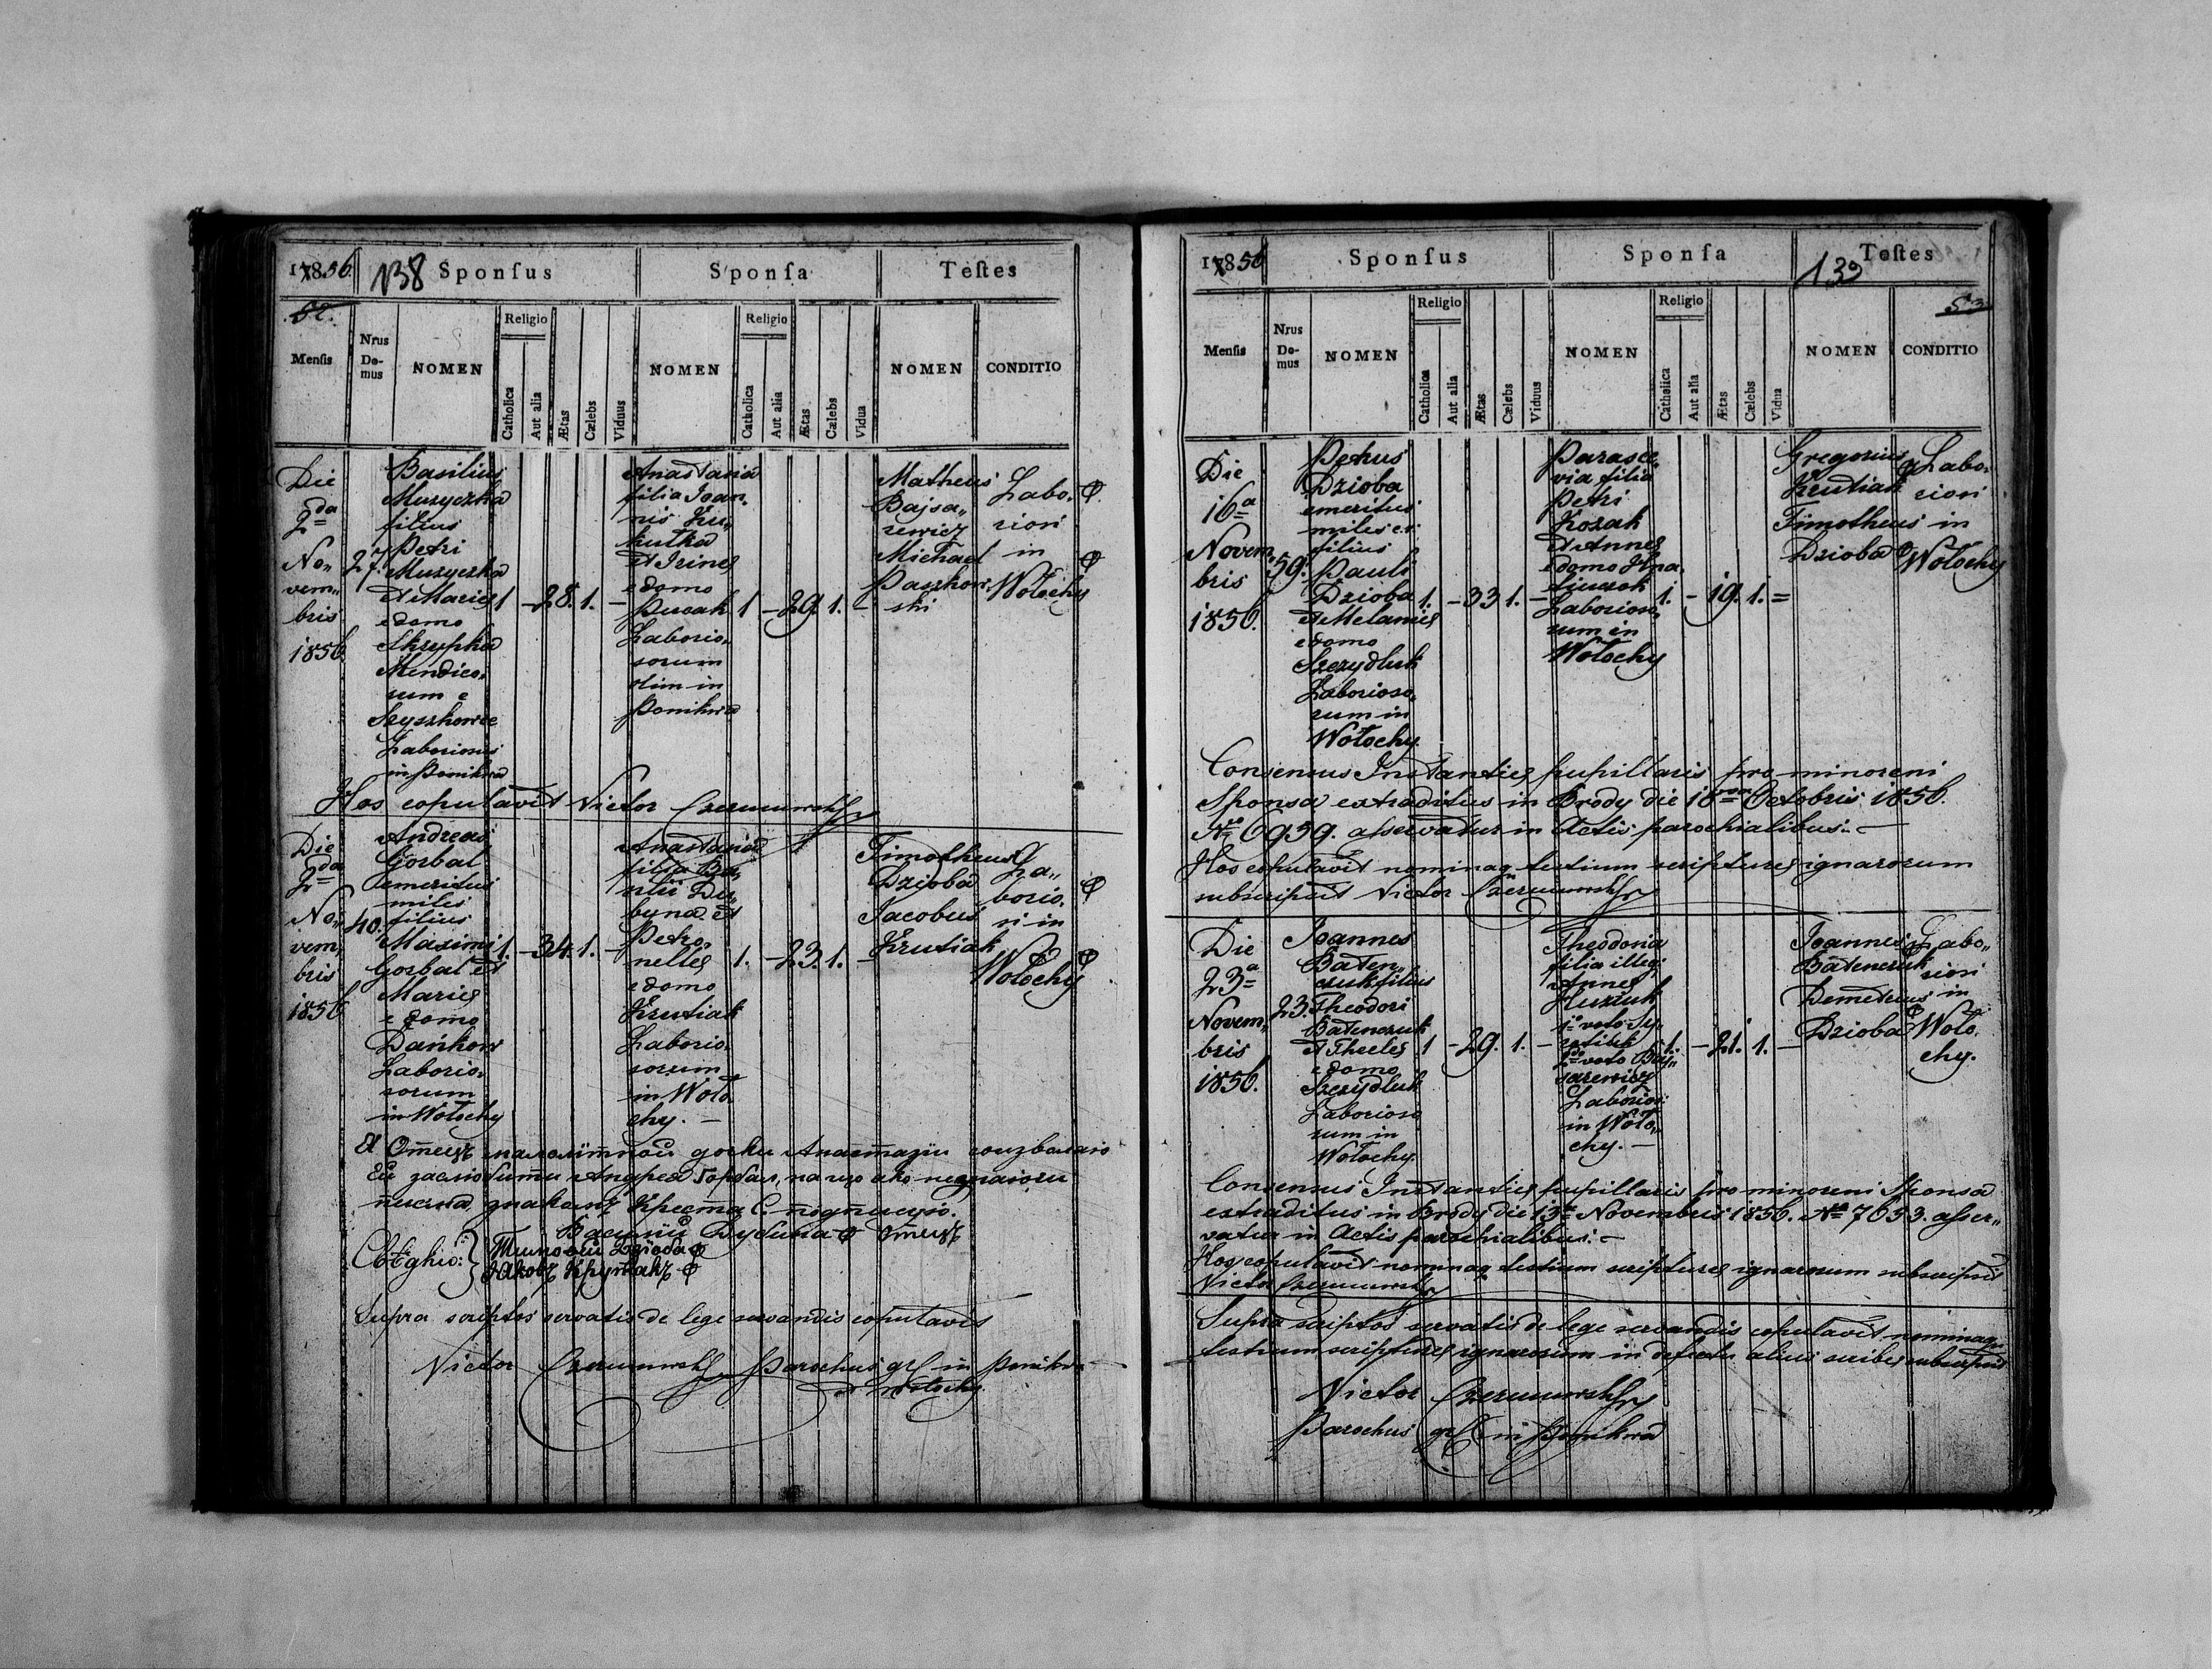 1856
138
Sponsus
Sponsa
Testes
52.
Mensis
Nrus Domus
NOMEN
Religio
Catholica
Aut alia
Ætas
Cælebs
Viduus
NOMEN
Religio
Catholica
Aut alia
Ætas
Cælebs
Vidua
NOMEN
CONDITIO
Die
2da
No„
vem„
bris
1856
27.
Basilius
Muzyczka
filius
Petri
Muzyczka
et Mariæ
e domo
Skrypka
Mendico„
rum e
Szyszkowce
Laboriosus
in Ponikwa
1 - 28. 1. -
Anastasia
filia Joan„
nis Ku„
kułka
et Irinæ
e domo
Pucak
Laborio„
sorum
olim in
Ponikwa
1 - 29. 1. -
Matheus
Bajsa„
rewicz
Michael
Paszkow„
ski
Labo„
riosi
in
Wołochy
Hos copulavit Victor
Die
2da
No„
vem„
bris
1856
40.
Andreas
Gorbal
emeritus
miles
filius
Maximi
Gorbal et
Mariæ
e domo
Dańkow
Laborio„
sorum
in Wołochy
1. - 34. 1. -
Anastasia
filia Ba„
silii Du„
byna et
Petro„
nellæ
e domo
Krutiak
Laborio„
sorum
in Woło
chy. -
1. - 23. 1. -
Timotheus
Dzioba
Jacobus
Krutiak
La„
borio„
si in
Wołochy
Я Отецъ малолѣтной дочки Анастазіи соизволяю
Ей заслюбити Андрея Горбал, на що яко незнаючи
писма знакомъ Креста С. подписую.
Василій Дубина Отецъ
Свѣдки: Тимотей Дзюба
Яковъ Крутякъ
Supra scriptos servatis de lege servandis copulavit
Victor Parochus gr in Ponikwa
et Wołochy
1856
Sponsus
Sponsa
139
Testes
53
Mensis
Nrus Domus
NOMEN
Religio
Catholica
Aut alia
Ætas
Cælebs
Viduus
NOMEN
Religio
Catholica
Aut alia
Ætas
Cælebs
Vidua
NOMEN
CONDITIO
Die
16a
Novem„
bris
1856.
59.
Petrus
Dzioba
emeritus
miles et
filius
Pauli
Dzioba
et Melaniæ
e domo
Szczydluk
Laborioso„
rum in
Wołochy.
1. - 33 1. -
Parasce„
via filia
Petri
Kozak
et Annæ
e domo
Laborioso„
rum in
Wołochy
1. - 19. 1. =
Gregorius
Krutiak
Timotheus
Dzioba
Labo„
riosi
in
Wołochy
Consensus Instantiæ pupillaris pro minoreni
Sponsa extraditus in Brody die Octobris 1856.
Nro 6959. asservatur in Actis parochialibus. -
Hos copulavit nominaq testium scripturæ ignarorum
subscripsit Victor
Die
23a
Novem„
bris
1856.
23.
Joannes
Baten„
czuk filius
Theodori
Batenczuk
et Theclæ
e domo
Szczydluk
Laborioso
rum in
Wołochy.
1 - 29. 1. -
Theodosia
filia illeg:
Annæ
1o voto
2do voto Baj„
sarewicz
Laborios:
in Woło„
chy. -
1. - 21. 1. -
Joannes
Batenczuk
Demetrius
Dzioba
Labo„
riosi
in
Woło„
chy.
Consensus Instantiæ pupillaris pro minoreni Sponsa
extraditus in Brody die 13a Novembris 1856. Nro 7653. asser„
vatur in Actis parochialibus. -
Hos copulavit nominaq testium scripturæ ignarorum subscripsit
Victor
Supra scriptos servatis de lege servandis copulavit nominaq
testium scripturæ ignarorum in defectu alius scribæ subscripsit
Victor
Parochus gr in Ponikwa